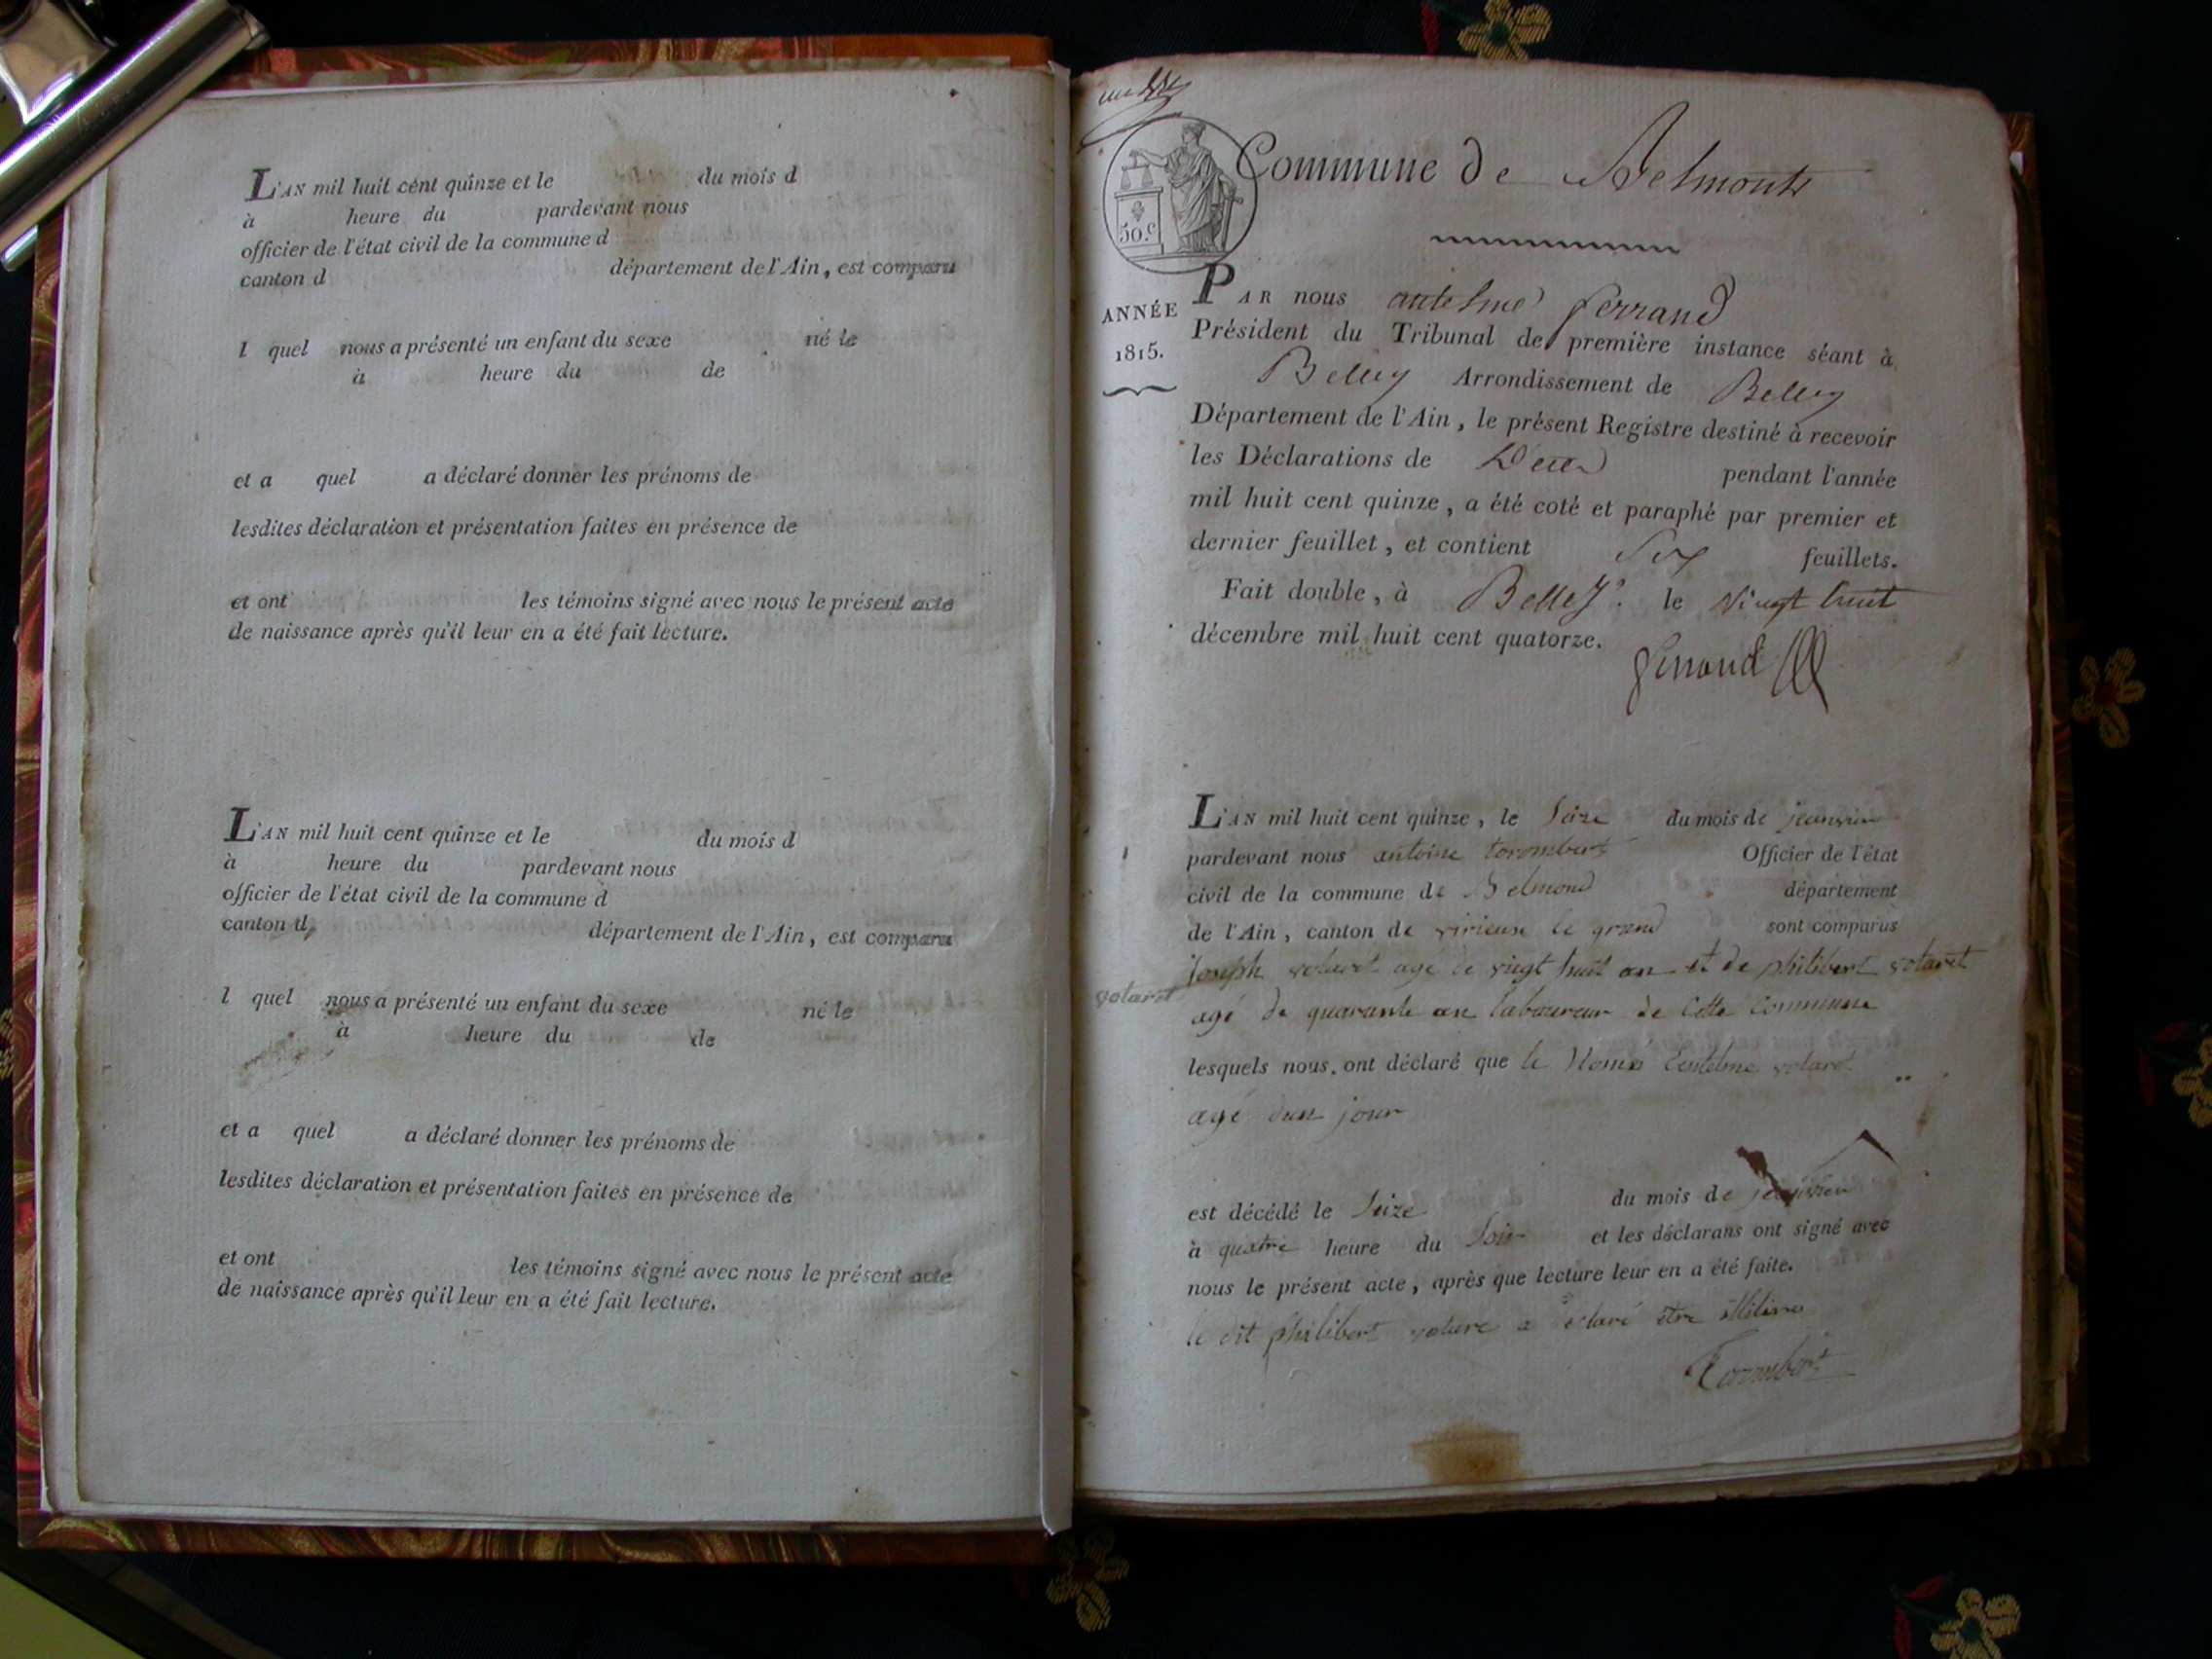 L'AN mil huit cent quinze et le du mois d
à heure du pardevant nous
officier de l'état civil de la commune d
canton d département de l'Ain, est comparu
l quel nous a présenté un enfant du sexe né le
à heure du de
et a quel a déclaré donner les prénoms de
lesdites déclaration et présentation faites en présence de
et ont les témoins signé avec nous le présent acte
de naissance après qu'il leur en a été fait lecture.
L'AN mil huit cent quinze et le du mois d
à heure du pardevant nous
officier de l'état civil de la commune d
canton d département de l'Ain, est comparu
l quel nous a présenté un enfant du sexe né le
à heure du de
et a quel a déclaré donner les prénoms de
lesdites déclaration et présentation faites en présence de
et ont les témoins signé avec nous le présent acte
de naissance après qu'il leur en a été fait lecture.
Commune de Belmont
50.c
ANNÉE
1815.
PAR nous antelme ferrand
Président du Tribunal de première instance séant à
Belley Arrondissement de Belley
Département de l'Ain, le présent Registre destiné à recevoir
les Déclarations de Décès pendant l'année
mil huit cent quinze, a été coté et paraphé par premier et
dernier feuillet, et contient Six feuillets.
Fait double, à Belley. le vingt huit
décembre mil huit cent quatorze.
1
L'AN mil huit cent quinze, le Seize du mois de
pardevant nous antoine torombert Officier de l'état
civil de la commune de Belmond département
de l'Ain, canton de virieux le grand sont comparus
joseph votaret agé de vingt huit an et de philibert votaret
votaret
agé de quarante an laboureur de Cette Commune
lesquels nous ont déclaré que le votaret
agé dun jour
est décédé le Seize du mois de
à quatre heure du Soir et les déclarans ont signé avec
nous le présent acte, après que lecture leur en a été faite.
le dit philibert a déclaré être
Torombert